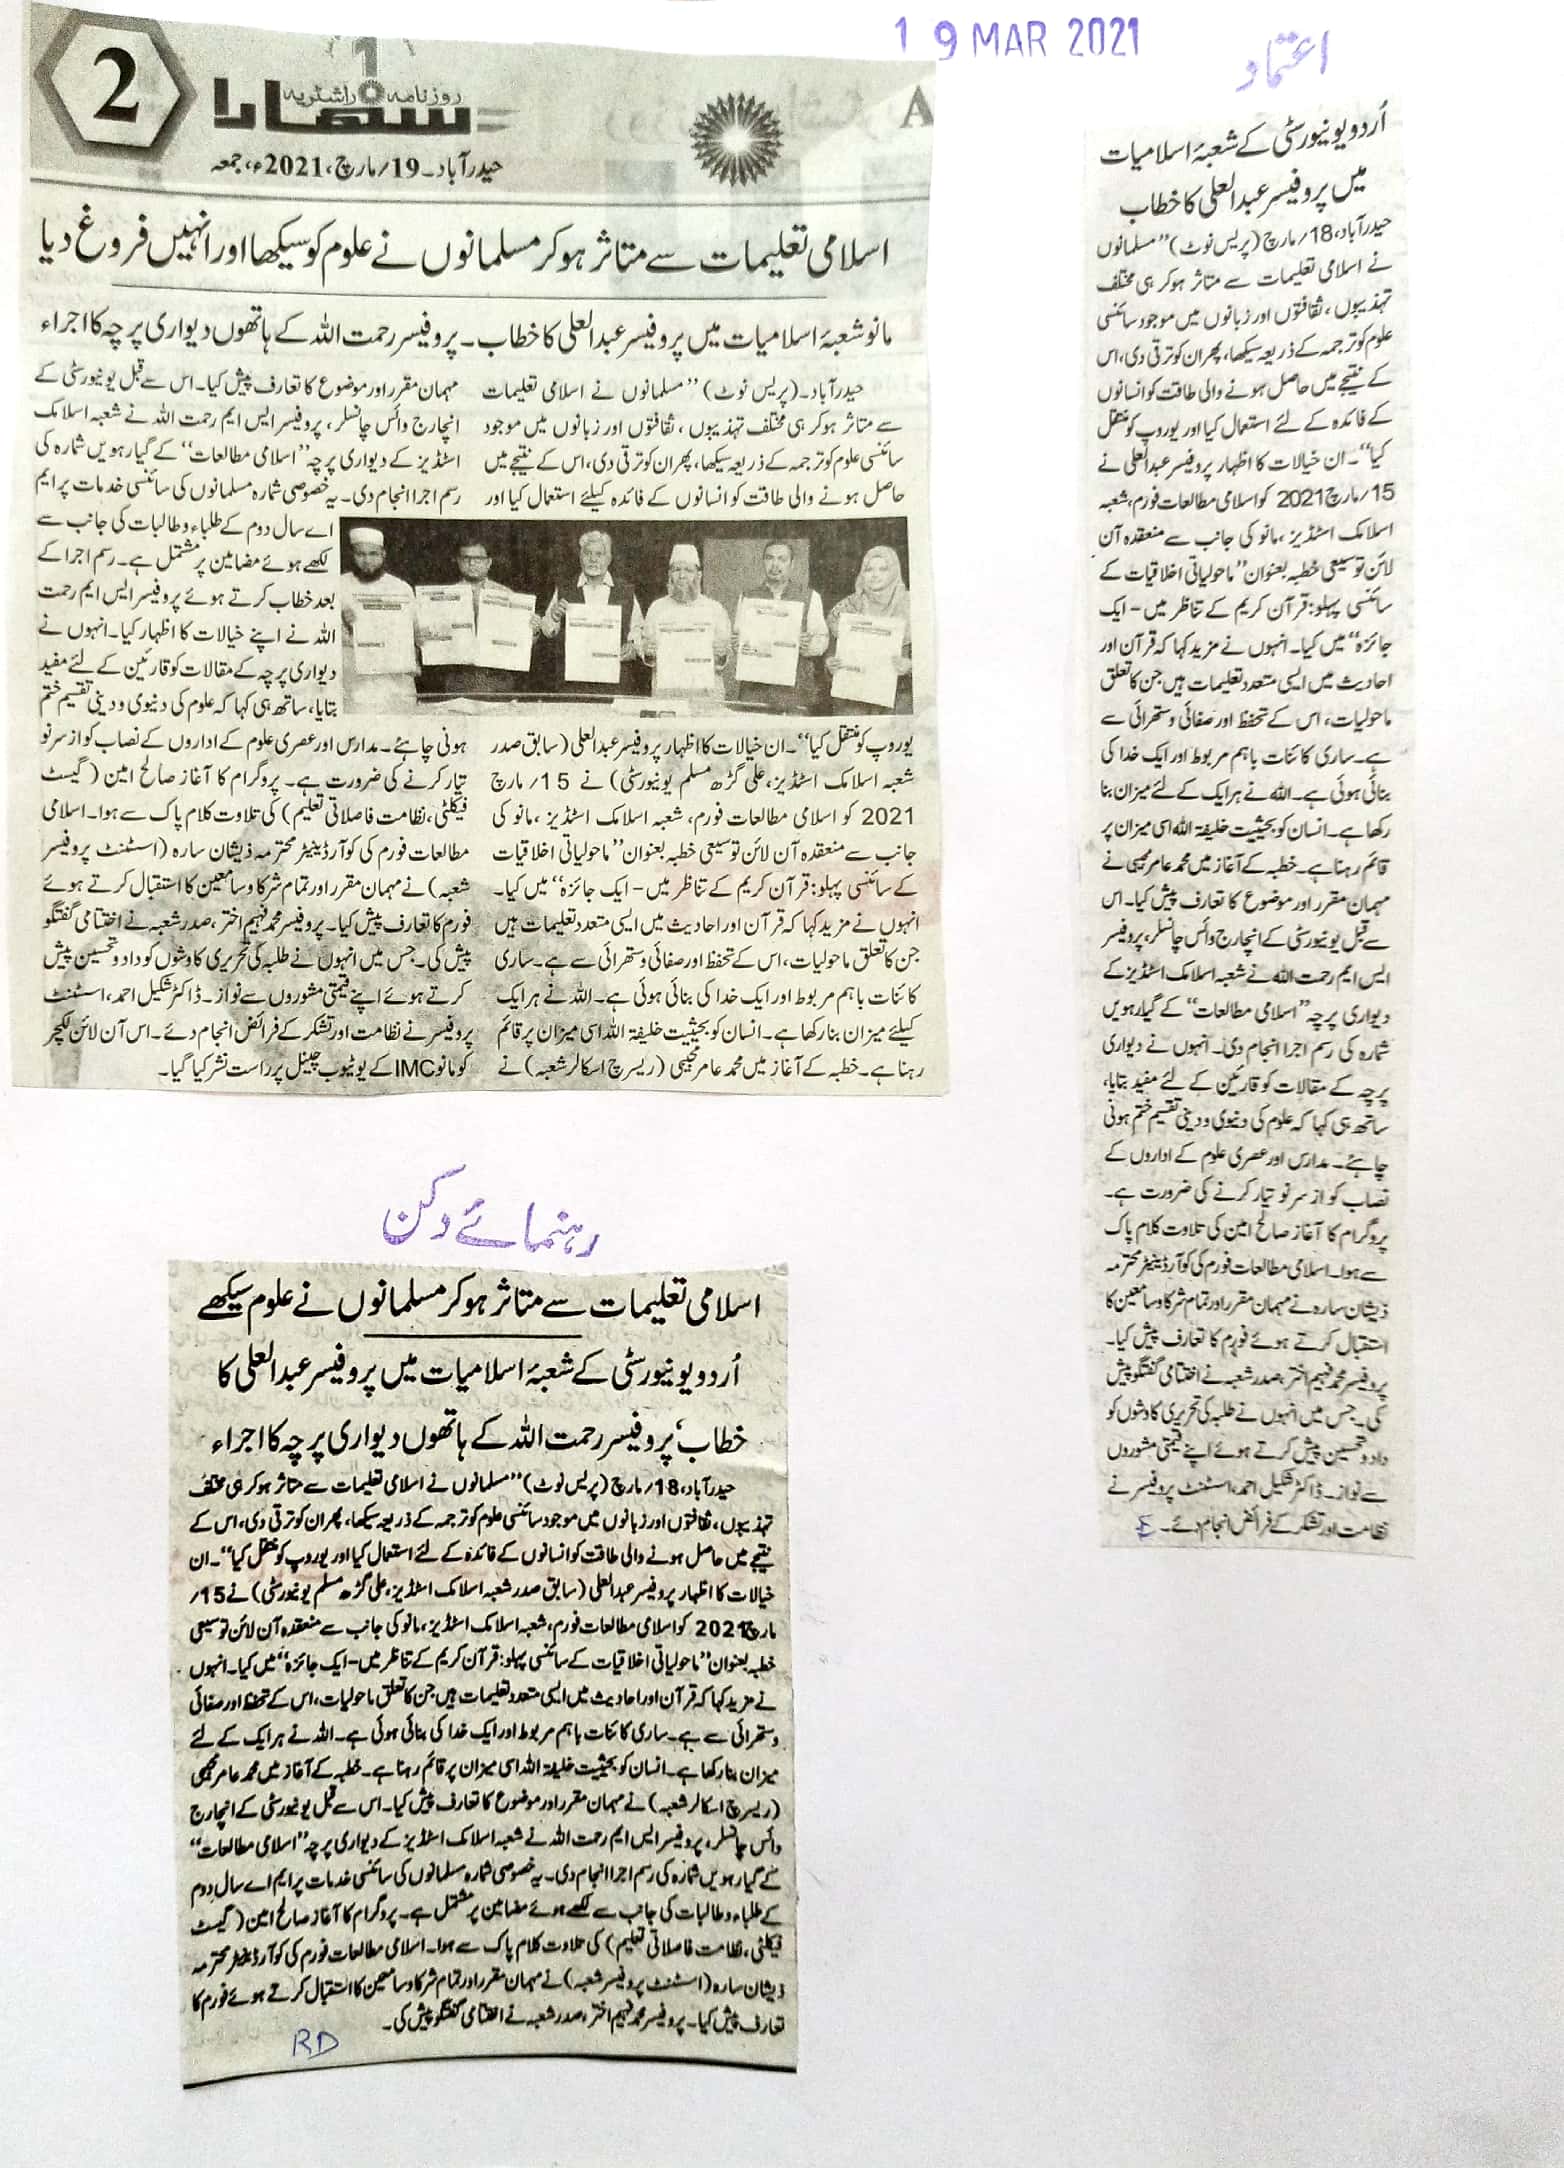 19 MAR 2021
اعتماد
2
روزنامہ راشٹریہ
سہارا
حیدرآباد۔ 19/مارچ، 2021ء، جمعہ
A
اسلامی تعلیمات سے متاثر ہوکر مسلمانوں نے علوم کو سیکھا اور انہیں فروغ دیا
مانو شعبۂ اسلامیات میں پروفیسر عبدالعلی کا خطاب۔ پروفیسر رحمت اللہ کے ہاتھوں دیواری پرچہ کا اجراء
حیدرآباد۔(پریس نوٹ) ’’مسلمانوں نے اسلامی تعلیمات
سے متاثر ہوکر ہی مختلف تہذیبوں، ثقافتوں اور زبانوں میں موجود
سائنسی علوم کو ترجمہ کے ذریعہ سیکھا، پھر ان کو ترقی دی، اس کے نتیجے میں
حاصل ہونے والی طاقت کو انسانوں کے فائدہ کیلئے استعمال کیا اور
یوروپ کو منتقل کیا‘‘۔ ان خیالات کا اظہار پروفیسر عبدالعلی (سابق صدر
شعبہ اسلامک اسٹڈیز، علی گڑھ مسلم یونیورسٹی) نے 15/ مارچ
2021 کو اسلامی مطالعات فورم، شعبہ اسلامک اسٹڈیز ،مانو کی
جانب سے منعقدہ آن لائن توسیعی خطبہ بعنوان ’’ماحولیاتی اخلاقیات
کے سائنسی پہلو: قرآن کریم کے تناظر میں - ایک جائزہ‘‘ میں کیا۔
انہوں نے مزید کہا کہ قرآن اور احادیث میں ایسی متعدد تعلیمات ہیں
جن کا تعلق ماحولیات، اس کے تحفظ اور صفائی وستھرائی سے ہے۔ ساری
کائنات باہم مربوط اور ایک خدا کی بنائی ہوئی ہے۔ اللہ نے ہر ایک
کیلئے میزان بنا رکھا ہے۔ انسان کو بحیثیت خلیفۃ اللہ اسی میزان پر قائم
رہنا ہے۔ خطبہ کے آغاز میں محمد عامر مجیبی (ریسرچ اسکالر شعبہ) نے
مہمان مقرر اور موضوع کا تعارف پیش کیا۔ اس سے قبل یونیورسٹی کے
انچارج وائس چانسلر، پروفیسر ایس ایم رحمت اللہ نے شعبہ اسلامک
اسٹڈیز کے دیواری پرچہ ’’اسلامی مطالعات‘‘ کے گیارہویں شمارہ کی
رسم اجرا انجام دی۔ یہ خصوصی شمارہ مسلمانوں کی سائنسی خدمات پر ایم
اے سال دوم کے طلباء وطالبات کی جانب سے
لکھے ہوئے مضامین پر مشتمل ہے۔ رسم اجرا کے
بعد خطاب کرتے ہوئے پروفیسر ایس ایم رحمت
اللہ نے اپنے خیالات کا اظہار کیا۔ انہوں نے
دیواری پرچہ کے مقالات کو قارئین کے لئے مفید
بتایا، ساتھ ہی کہا کہ علوم کی دنیوی و دینی تقسیم ختم
ہونی چاہئے۔ مدارس اور عصری علوم کے اداروں کے نصاب کو از سر نو
تیار کرنے کی ضرورت ہے۔ پروگرام کا آغاز صالح امین (گیسٹ
فیکلٹی، نظامت فاصلاتی تعلیم) کی تلاوت کلام پاک سے ہوا۔ اسلامی
مطالعات فورم کی کوآرڈینیٹر محترمہ ذیشان سارہ (اسٹنٹ پروفیسر
شعبہ) نے مہمان مقرر اور تمام شرکا و سامعین کا استقبال کرتے ہوئے
فورم کا تعارف پیش کیا۔ پروفیسر محمد فہیم اختر، صدر شعبہ نے اختتامی گفتگو
پیش کی۔ جس میں انہوں نے طلبہ کی تحریری کاوشوں کو داد و تحسین پیش
کرتے ہوئے اپنے قیمتی مشوروں سے نواز۔ ڈاکٹر شکیل احمد، اسٹنٹ
پروفیسر نے نظامت اور تشکر کے فرائض انجام دئے۔ اس آن لائن لکچر
کو مانو IMC کے یوٹیوب چینل پر راست نشر کیا گیا۔
اُردو یونیورسٹی کے شعبۂ اسلامیات
میں پروفیسر عبدالعلی کا خطاب
حیدرآباد، 18/مارچ (پریس نوٹ) ’’مسلمانوں
نے اسلامی تعلیمات سے متاثر ہوکر ہی مختلف
تہذیبوں، ثقافتوں اور زبانوں میں موجود سائنسی
علوم کو ترجمہ کے ذریعہ سیکھا، پھر ان کو ترقی دی، اس
کے نتیجے میں حاصل ہونے والی طاقت کو انسانوں
کے فائدہ کے لئے استعمال کیا اور یوروپ کو منتقل
کیا‘‘۔ ان خیالات کا اظہار پروفیسر عبدالعلی نے
15/مارچ 2021 کو اسلامی مطالعات فورم، شعبہ
اسلامک اسٹڈیز ،مانو کی جانب سے منعقدہ آن
لائن توسیعی خطبہ بعنوان ’’ماحولیاتی اخلاقیات کے
سائنسی پہلو: قرآن کریم کے تناظر میں - ایک
جائزہ‘‘ میں کیا۔ انہوں نے مزید کہا کہ قرآن اور
احادیث میں ایسی متعدد تعلیمات ہیں جن کا تعلق
ماحولیات، اس کے تحفظ اور صفائی وستھرائی سے
ہے۔ ساری کائنات باہم مربوط اور ایک خدا کی
بنائی ہوئی ہے۔ اللہ نے ہر ایک کے لئے میزان بنا
رکھا ہے۔ انسان کو بحیثیت خلیفۃ اللہ اسی میزان پر
قائم رہنا ہے۔ خطبہ کے آغاز میں محمد عامر مجیبی نے
مہمان مقرر اور موضوع کا تعارف پیش کیا۔ اس
سے قبل یونیورسٹی کے انچارج وائس چانسلر، پروفیسر
ایس ایم رحمت اللہ نے شعبہ اسلامک اسٹڈیز کے
دیواری پرچہ ’’اسلامی مطالعات‘‘ کے گیارہویں
شمارہ کی رسم اجرا انجام دی۔ انہوں نے دیواری
پرچہ کے مقالات کو قارئین کے لئے مفید بتایا،
ساتھ ہی کہا کہ علوم کی دنیوی و دینی تقسیم ختم ہونی
چاہئے۔ مدارس اور عصری علوم کے اداروں کے
نصاب کو از سر نو تیار کرنے کی ضرورت ہے۔
پروگرام کا آغاز صالح امین کی تلاوت کلام پاک
سے ہوا۔ اسلامی مطالعات فورم کی کوآرڈینیٹر محترمہ
ذیشان سارہ نے مہمان مقرر اور تمام شرکا و سامعین کا
استقبال کرتے ہوئے فورم کا تعارف پیش کیا۔
پروفیسر محمد فہیم اختر، صدر شعبہ نے اختتامی گفتگو پیش
کی۔ جس میں انہوں نے طلبہ کی تحریری کاوشوں کو
داد و تحسین پیش کرتے ہوئے اپنے قیمتی مشوروں
سے نواز۔ ڈاکٹر شکیل احمد، اسٹنٹ پروفیسر نے
نظامت اور تشکر کے فرائض انجام دئے۔ E
رہنمائے دکن
اسلامی تعلیمات سے متاثر ہوکر مسلمانوں نے علوم سیکھے
اُردو یونیورسٹی کے شعبۂ اسلامیات میں پروفیسر عبدالعلی کا
خطاب‘ پروفیسر رحمت اللہ کے ہاتھوں دیواری پرچہ کا اجراء
حیدرآباد، 18/مارچ (پریس نوٹ) ’’مسلمانوں نے اسلامی تعلیمات سے متاثر ہوکر ہی مختلف
تہذیبوں، ثقافتوں اور زبانوں میں موجود سائنسی علوم کو ترجمہ کے ذریعہ سیکھا، پھر ان کو ترقی دی، اس کے
نتیجے میں حاصل ہونے والی طاقت کو انسانوں کے فائدہ کے لئے استعمال کیا اور یوروپ کو منتقل کیا‘‘۔ ان
خیالات کا اظہار پروفیسر عبدالعلی (سابق صدر شعبہ اسلامک اسٹڈیز، علی گڑھ مسلم یونیورسٹی) نے 15/
مارچ 2021 کو اسلامی مطالعات فورم، شعبہ اسلامک اسٹڈیز ،مانو کی جانب سے منعقدہ آن لائن توسیعی
خطبہ بعنوان ’’ماحولیاتی اخلاقیات کے سائنسی پہلو: قرآن کریم کے تناظر میں - ایک جائزہ‘‘ میں کیا۔ انہوں
نے مزید کہا کہ قرآن اور احادیث میں ایسی متعدد تعلیمات ہیں جن کا تعلق ماحولیات، اس کے تحفظ اور صفائی
وستھرائی سے ہے۔ ساری کائنات باہم مربوط اور ایک خدا کی بنائی ہوئی ہے۔ اللہ نے ہر ایک کے لئے
میزان بنا رکھا ہے۔ انسان کو بحیثیت خلیفۃ اللہ اسی میزان پر قائم رہنا ہے۔ خطبہ کے آغاز میں محمد عامر مجیبی
(ریسرچ اسکالر شعبہ) نے مہمان مقرر اور موضوع کا تعارف پیش کیا۔ اس سے قبل یونیورسٹی کے انچارج
وائس چانسلر، پروفیسر ایس ایم رحمت اللہ نے شعبہ اسلامک اسٹڈیز کے دیواری پرچہ ’’اسلامی مطالعات‘‘
کے گیارہویں شمارہ کی رسم اجرا انجام دی۔ یہ خصوصی شمارہ مسلمانوں کی سائنسی خدمات پر ایم اے سال دوم
کے طلباء وطالبات کی جانب سے لکھے ہوئے مضامین پر مشتمل ہے۔ پروگرام کا آغاز صالح امین (گیسٹ
فیکلٹی، نظامت فاصلاتی تعلیم) کی تلاوت کلام پاک سے ہوا۔ اسلامی مطالعات فورم کی کوآرڈینیٹر محترمہ
ذیشان سارہ (اسٹنٹ پروفیسر شعبہ) نے مہمان مقرر اور تمام شرکا و سامعین کا استقبال کرتے ہوئے فورم کا
تعارف پیش کیا۔ پروفیسر محمد فہیم اختر، صدر شعبہ نے اختتامی گفتگو پیش کی۔
RD